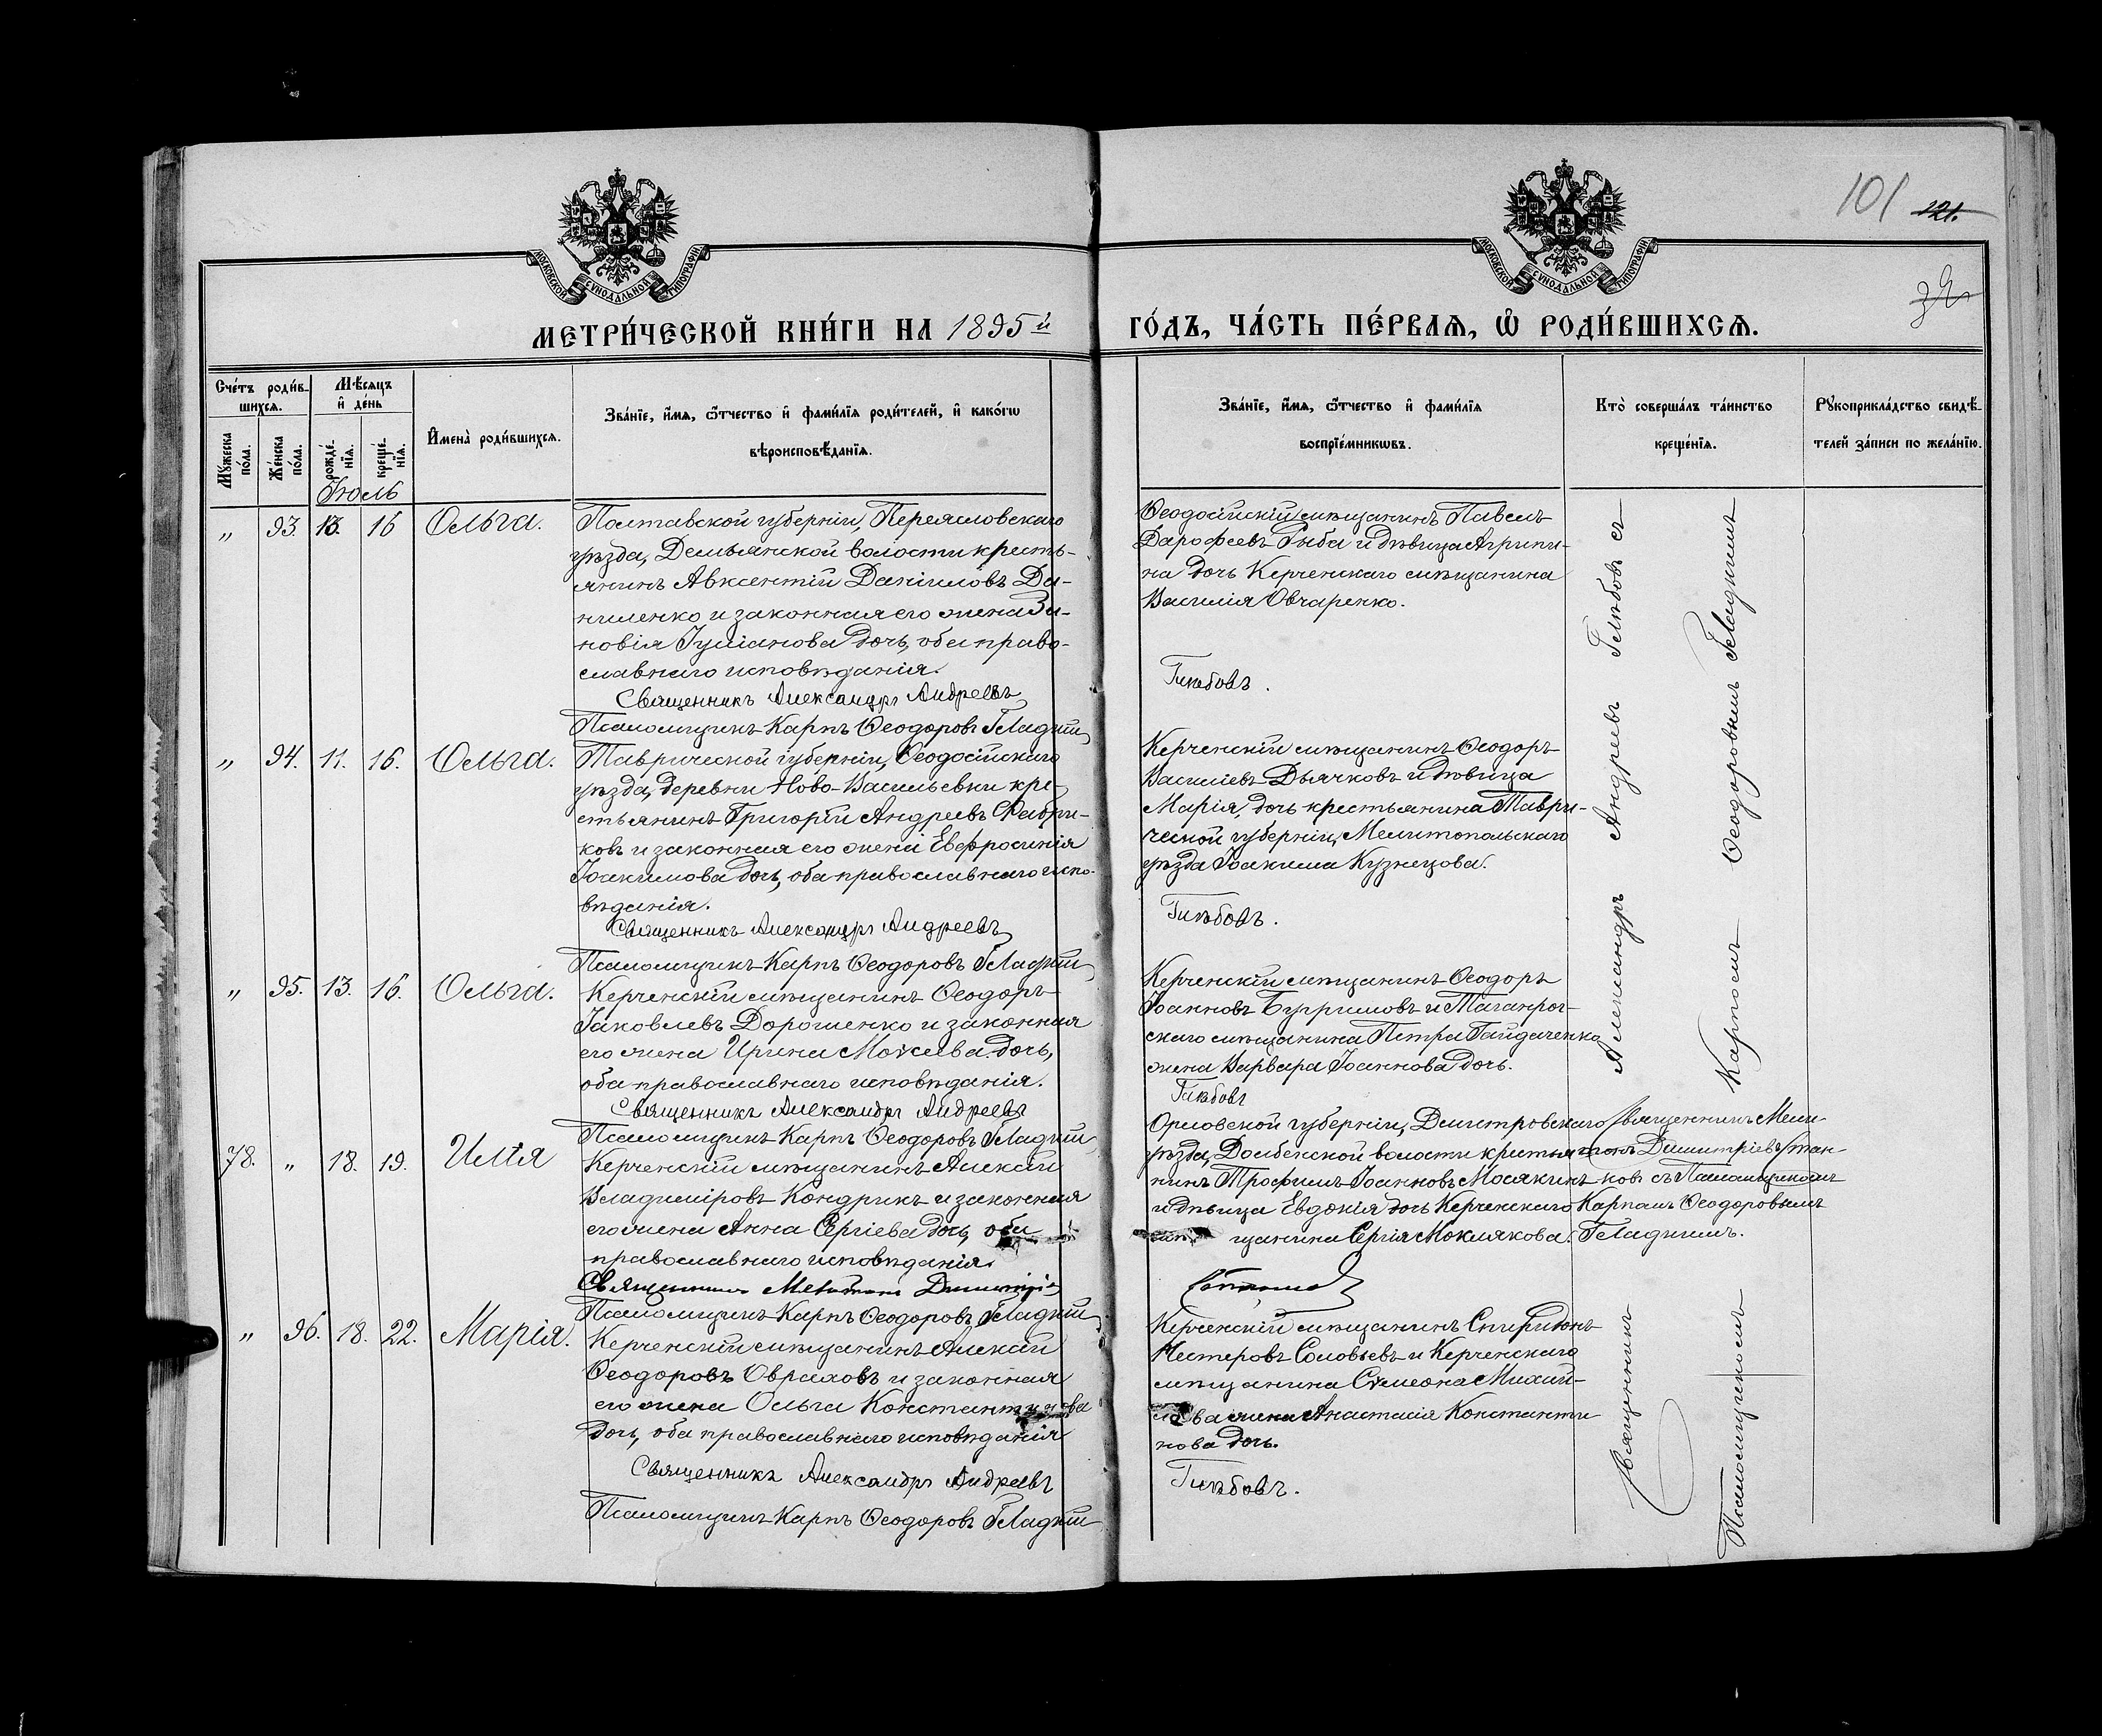 101 121.
МОСКОВСКОЙ СѴНОДАЛЬНОЙ ТИПОГРАФІИ
МОСКОВСКОЙ СѴНОДАЛЬНОЙ ТИПОГРАФІИ
МЕТРИ́ЧЕСКОЙ КНИ́ГИ НА 1895й
ГО́ДЪ, ЧА́СТЬ ПЕ́РВАѦ, Ѡ РОДИ́ВШИХСѦ.
Сче́тъ роди́в-
шихсѧ.
Мꙋжеска по́ла.
Же́нска по́ла.
Мѣ́сѧцъ и҆ де́нь
рожде́-нїѧ.
креще́-нїѧ.
И҆мена̀ роди́вшихсѧ.
Зва́нїе, и҆́мѧ, ѻ҆́тчество и҆ фами́лїѧ роди́телей, и҆ како́гѡ
вѣроисповѣ́данїѧ.
Зва́нїе, и҆́мѧ, ѻ҆́тчество и҆ фами́лїѧ
воспрїе́мникѡвъ.
Кто̀ соверша́лъ та́инство
креще́нїѧ.
Рꙋкоприкла́дство свидѣ́-
телей за́писи по жела́нїю.
Іюль
„ 93. 13. 16 Ольга.
Полтавской губерніи, Переясловскаго
уѣзда, Демьянской волости кресть-
янинъ Авксентій Даніиловъ Да-
ниленко и законная его жена Зи-
новія Іуліанова дочь, оба право-
славнаго исповѣданія.
Священникъ Александръ Андреевъ
Псаломщикъ Карпъ Ѳеодоровъ Гладкій
Ѳеодосійскій мѣщанинъ Павелъ
Дарофеевъ Рыба и дѣвица Агрипи-
на дочь Керченскаго мѣщанина
Василія Овчаренко.
Глѣбовъ.
„ 94. 11. 16. Ольга.
Таврической губерніи, Ѳеодосійскаго
уѣзда, деревни Ново-Васильевки кре-
стьянинъ Григорій Андреевъ Фабри-
ковъ и законная его жена Евфросинія
Іоакимова дочь, оба православнаго испо-
вѣданія.
Священникъ Александръ Андреевъ
Псаломщикъ Карпъ Ѳеодоровъ Гладкій
Керченскій мѣщанинъ Ѳеодоръ
Василіевъ Дьячковъ и дѣвица
Марія, дочь крестьянина Таври-
ческой губерніи, Мелитопольскаго
уѣзда Іоакима Кузнецова.
Глѣбовъ.
„ 95. 13. 16. Ольга.
Керченскій мѣщанинъ Ѳеодоръ
Іаковлевъ Дорошенко и законная
его жена Ирина Моѵсеева дочь,
оба православнаго исповѣданія.
Священникъ Александръ Андреевъ
Псаломщикъ Карпъ Ѳеодоровъ Гладкій
Керченскій мѣщанинъ Ѳеодоръ
Іоанновъ и Таганрог-
скаго мѣщанина Петра Гайдаченко
жена Варвара Іоаннова дочь.
Глѣбовъ
78. „ 18. 19. Илія
Керченскій мѣщанинъ Алексій
Владиміровъ Кондрикъ и законная
его жена Анна Сергіева дочь, оба
православнаго исповѣданія.
Священникъ Мелитонъ Димитріевъ
Псаломщикъ Карпъ Ѳеодоровъ Гладкій
Орловской губерніи, Дмитровскаго
уѣзда, Домбенской волости крестья-
нинъ Трофимъ Іоанновъ Мосякинъ
и дѣвица Евдокія дочь Керченскаго
мѣщанина Сергія Моклякова.
Священникъ Мели-
тонъ Димитріевъ Стан-
ковъ съ Псаломщикомъ
Карпомъ Ѳеодоровымъ
Гладкимъ.
„ 96. 18. 22. Марія.
Керченскій мѣщанинъ Алексій
Ѳеодоровъ Овраховъ и законная
его жена Ольга Константинова
дочь, оба православнаго исповѣданія
Священникъ Александръ Андреевъ
Псаломщикъ Карпъ Ѳеодоровъ Гладкій
Керченскій мѣщанинъ Спиридонъ
Нестеровъ Соловьевъ и Керченскаго
мѣщанина Сѵмеона Михай-
лова жена Анастасія Константи
нова дочь.
Глѣбовъ.
Священникъ Александръ Андреевъ Глѣбовъ съ
Псаломщикомъ Карпомъ Ѳеодоровымъ Гладкимъ